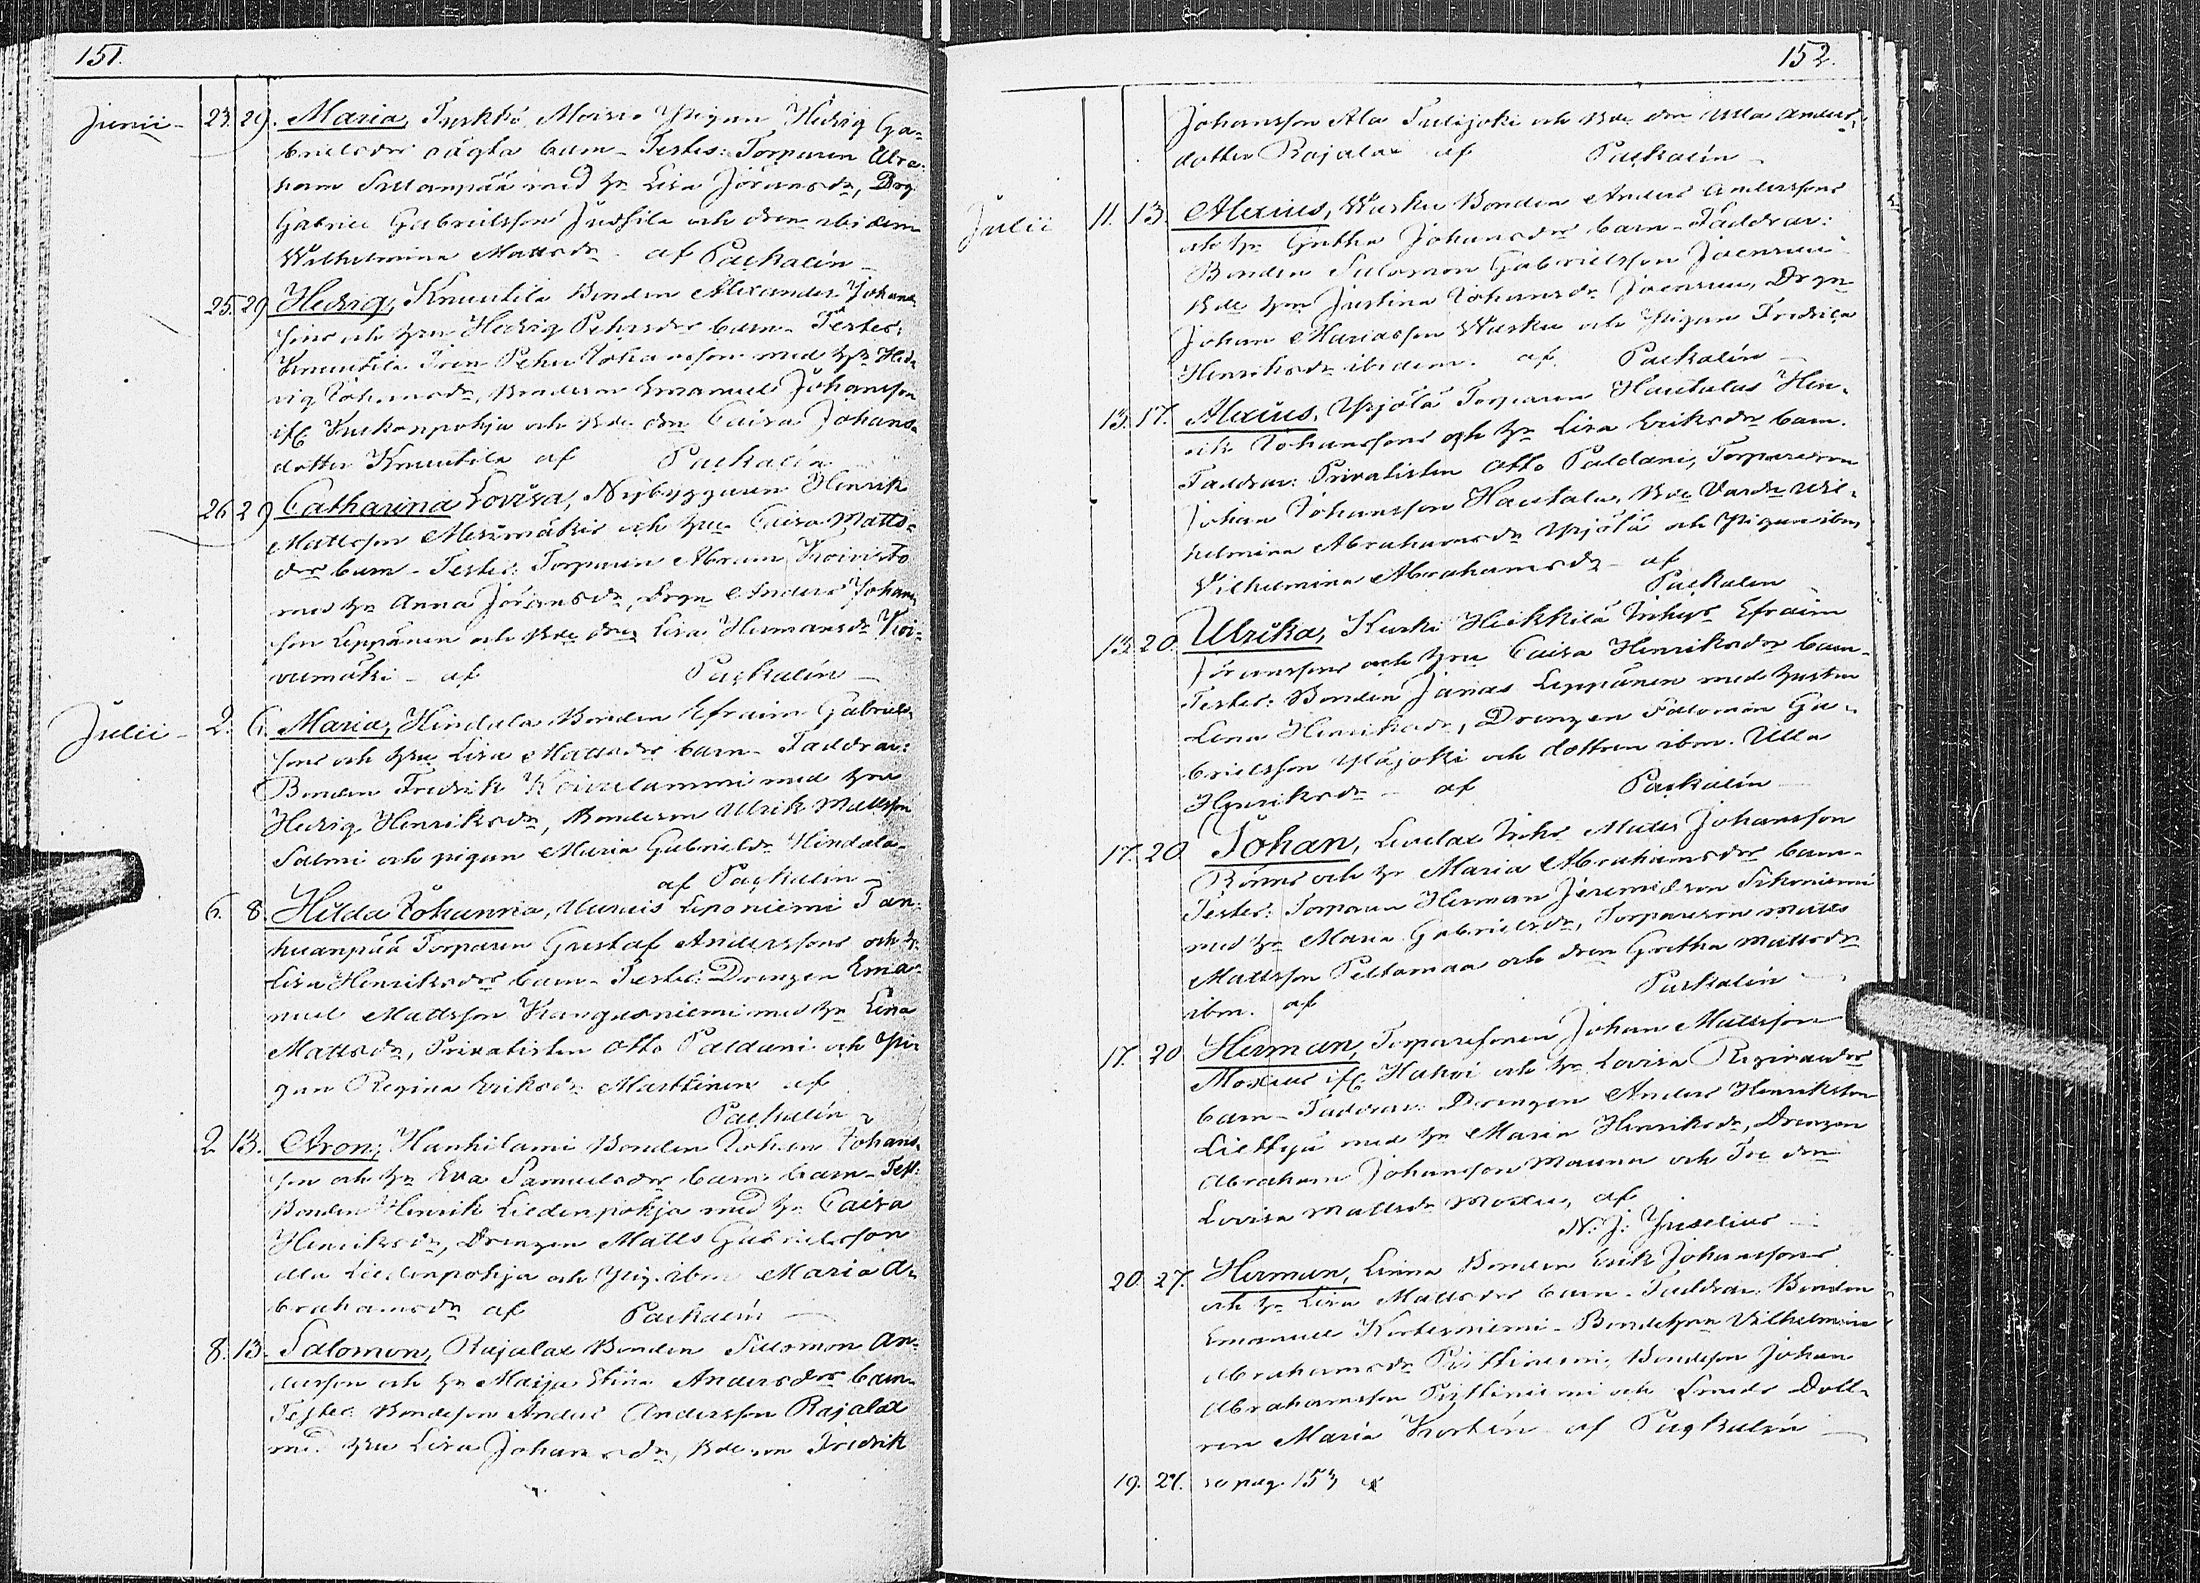 151.
Junii - 23. 29. Maria, Tyrkkö Moisio Pigan Hedvig Ga-
brielsdrs oägta barn - Testes: Torparen Abra-
ham Sillanpää med h: Lisa Jöransdr, Drg
Gabriel Gabrielsson Jussila och dren ibidem
Wilhelmina Mattsdr af Paskalin -
25. 29 Hedvig, Knuutila Bonden Alexander Johans-
sons och hru Hedvig Pehrsdrs barn - Testes:
Knuutila Pehr Johansson med h: Hed-
vig Johansdr, Bondeson Emanuel Johansson
ifr. Kuckonpohja och Bde drn Caisa Johans-
dotter Knuutila af Paskalin
26 29 Catharina Lovisa, Nybyggaren Henrik
Mattsson och hru Caisa Matts-
drs barn - Testes: Torparen Abram Koivisto
med h: Anna Jöransdr, Drgn Anders Johans-
son Leppänen och Bde drn Lisa Hermansdr Koi-
vumäki - af Paskalin -
Julii - 2. 6. Maria, Hindala Bonden Efraim Gabriels-
sons och hru Lisa Mattsdrs barn - Faddrar:
Bonden Fredrik Koivulammi med hru
Hedvig Henriksdr, Bondeson Ulrik Mattsson
Salmi och pigan Maria Gabrielsdr Hindala -
af Paskalin -
6. 8. Hilda Johanna, Uurais Leponiemi Tan-
huanpää Torparen Gustaf Anderssons och h:
Lisa Henriksdrs barn - Testes: Drengen Ema-
nuel Mattsson Kangasniemi med h: Lena
Mattsdr, Privatisten Otto Paldani och Pi-
gan Regina Eriksdr Marttinen af
Paskalin -
2 13. Aron, Hanhilami Bonden Johan Johans-
son och h: Eva Samuelsdrs barn: barn - Test:
Bonden Henrik Liedenpohja med h: Caisa
Henriksdr, Drengen Matts Gabrielsson
Ala Liedenpohja och Pig. ibm Maria A-
brahamsdr af Paskalin -
8. 13. Salomon, Rajalax Bonden Salomon An-
dersson och h: Maija Stina Andersdrs barn
Testes: Bondeson Anders Andersson Rajalax
med hru Lisa Johansdr, Bdeson Fredrik
152.
Johansson Ala Tulijoki och Bde drn Ulla Anders-
dotter Rajalax af Paskalin -
Julii 11. 13. Alexius, Wasku Bonden Anders Anderssons
och h: Gretha Johansdrs barn - Faddrar:
Bonden Salomon Gabrielsson Joensuu
Bde hru Justina Johansdr Joensuu, Drgn
Johan Mariasson Wasku och Pigan Fredrika
Henriksdr ibidem. af Paskalin -
13. 17. Alexius, Yrjölä Torparen Hautalas Hen-
rik Johanssons och h: Lisa Eriksdrs barn.
Faddrar: Privatisten Otto Paldani, Torpareson
Johan Johansson Hautala, Bde Wil-
helmina Abrahamsdr Yrjölä och Pigan ibm
Vilhelmina Abrahamsdr - af
Paskalin
13. 20. Ulrika, Kurki Heikkilä Inhys Efraim
Jöranssons och hru Caisa Henriksdrs barn -
Testes: Bonden Jonas Leppänen med hustru
Lena Henriksdr, Drengen Salomon Ga-
brielsson Yläjoki och dottren ibm. Ulla
Henriksdr - af Paskalin -
17. 20 Johan, Luulax Inhs Matts Johansson
Rönns och h: Maria Abrahamsdrs barn -
Testes: Torparen Herman Jeremiæson Sikoniemi
med h: Maria Gabrielsdr, Torpareson Matts
Mattsson Peltomaa och dren Gretha Mattsdr
ibm. af Paskalin -
17. 20 Herman, Torparesonen Johan Mattsson
Moxius ifr. Hakoi och h: Lovisa Reginædrs
barn - Faddrar: Drengen Anders Henriksson
Liettyä med h: Maria Henriksdr, Drengen
Abraham Johansson Mauna och Tre drn
Lovisa Mattsdr Moxiu, af
N. J. Juselius -
20. 27. Herman, Linna Bonden Erik Johanssons
och h: Lisa Mattsdrs barn - Faddrar: Bonden
Emanuel Kortesniemi - Bondehru Vilhelmina
Abrahamsdr Pyttiniemi, Bondeson Johan
Abrahamsson Pyttiniemi och Smeds Dott-
ren Maria Kortén af Paskalin -
19. 27. se pag. 153